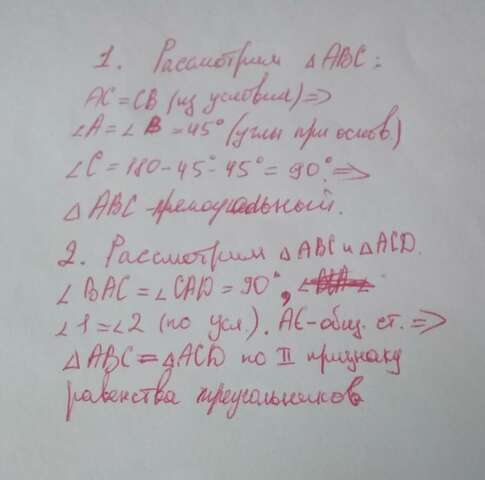 1. Рассмотрим △ABC:
AC = CB (из условия) =>
∠A = ∠B = 45° (углы при основ.)
∠C = 180 - 45° - 45° = 90° =>
△ABC - прямоугольный.
2. Рассмотрим △ABC и △ACD.
∠BAC = ∠CAD = 90°,
∠1 = ∠2 (по усл.). AC - общ. ст. =>
△ABC = △ACD по II признаку
равенства треугольников